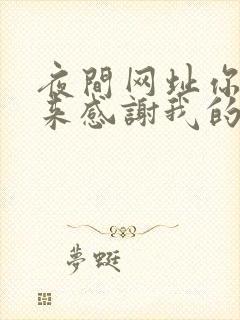 夜間网址你
来感謝我的
夢蜓